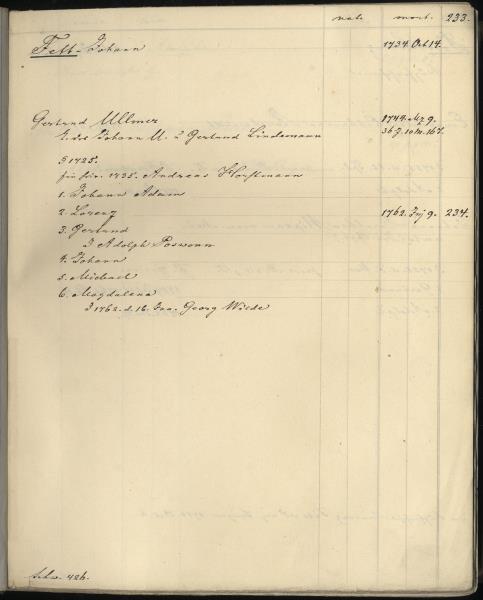 nat. mort. 233.
Fett. Johann 1734. Oct 14.
Gertrud Ullmer 1749. Mz 9.
Johann U. Gertrud Lindemann 36 J. 10 M. 16 T.
1725.
1735. Andreas Horstmann
1. Johann Adam
2. Lorenz 1762. 9. 234.
3. Gertrud
Adolph
4. Johann
5. Michael
6. Magdalena
1762. d. 16. Jan. Georg Wilde
426.